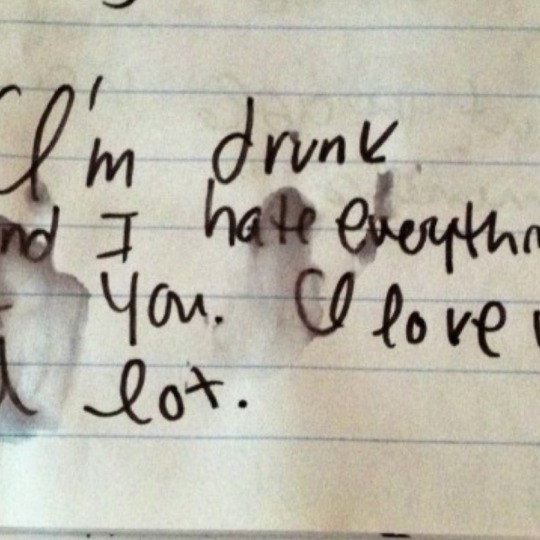 I'm drunk
nd I hate everythin
you. I love
lot.